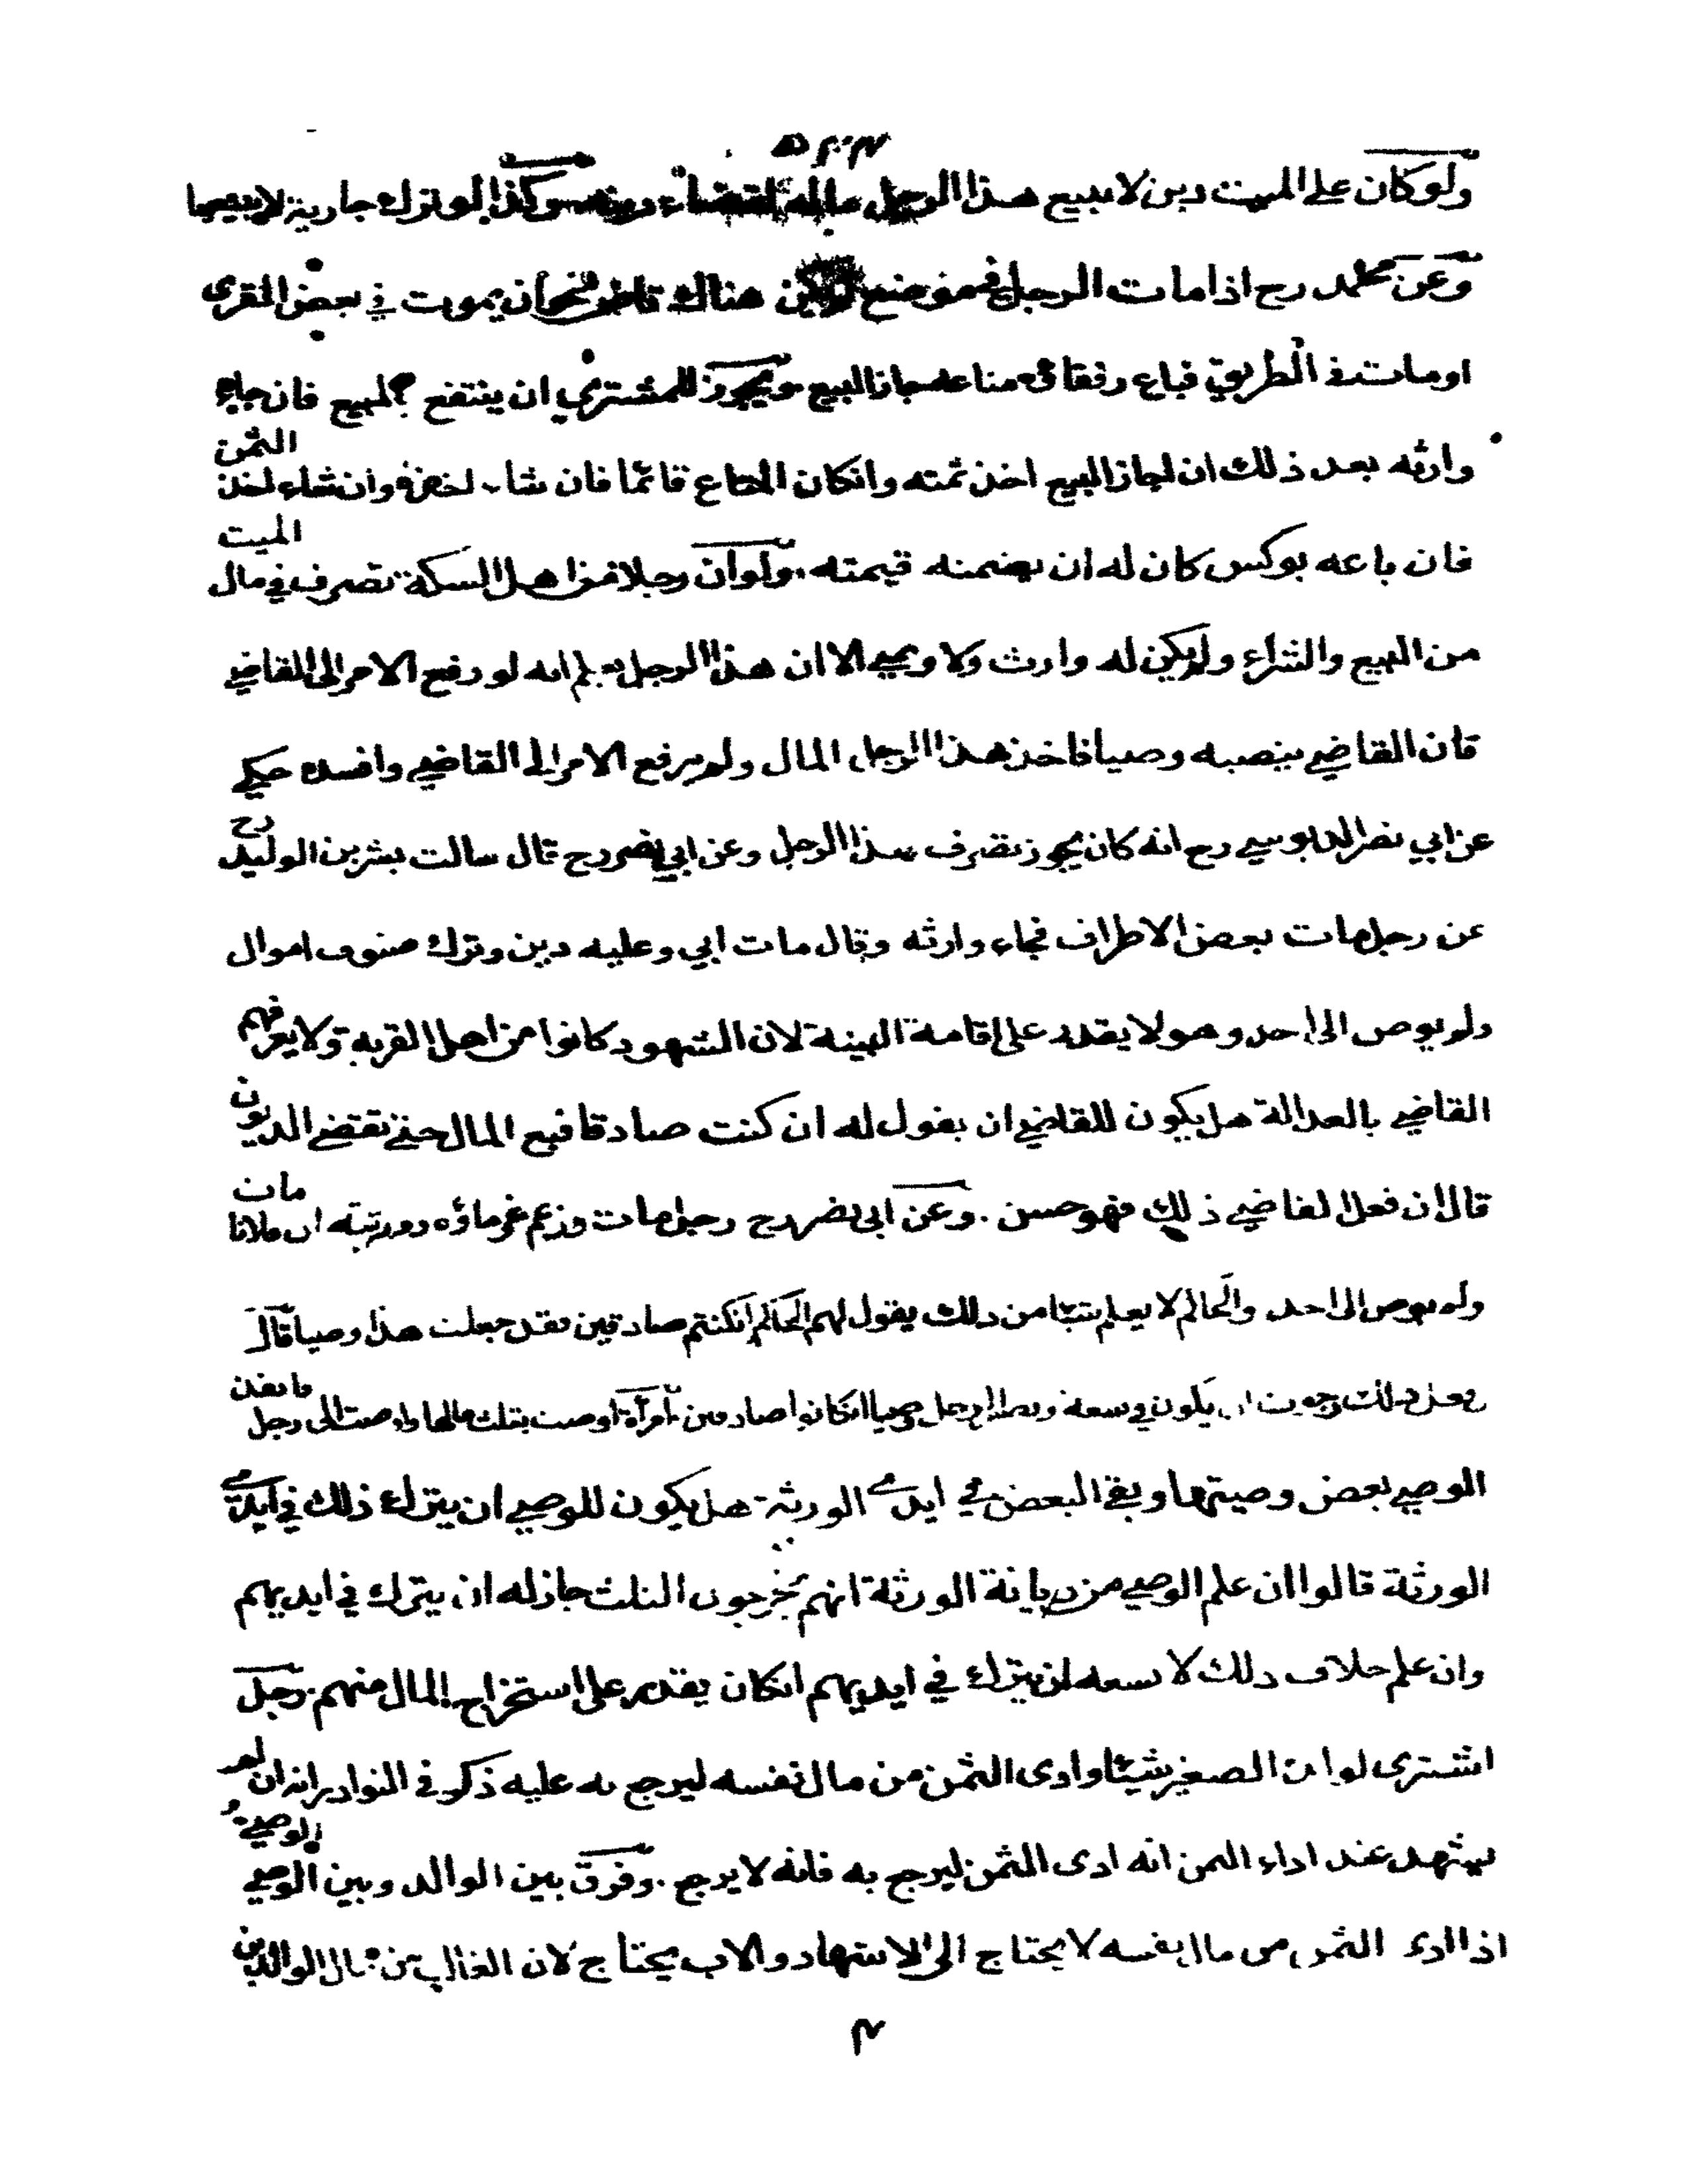 ولو كان على الميت دين لا يبيع هذا الرجل ماله لقضاء دينه وكذا لو ترك جارية لا يبيعها
وعن محمد رح اذا مات الرجل في موضع لم يكن هناك قاض نحو ان يموت في بعض القرى
او مات في الطريق فباع رفقاؤه متاعه جاز البيع ويجوز للمشتري ان ينتفع بالمبيع فان جاء
وارثه بعد ذلك ان اجاز البيع اخذ ثمنه وان كان المتاع قائما فان شاء اخذه وان شاء اخذ الثمن
فان باعه بوكس كان له ان يضمنه قيمته ولو ان رجلا من اهل السكة تصرف في مال الميت
من البيع والشراء ولم يكن له وارث ولا وصي الا ان هذا الرجل يعلم انه لو رفع الامر الى القاضي
فان القاضي ينصبه وصيا فاخذ هذا الرجل المال ولم يرفع الامر الى القاضي وافسده حكي
عن ابي نصر الدبوسي رح انه كان يجوز تصرف هذا الرجل وعن ابي نصر رح قال سالت بشر بن الوليد رح
عن رجل مات ببعض الاطراف فجاء وارثه وقال مات ابي وعليه دين وترك صنوف اموال
ولم يوص الى احد وهو لا يقدر على اقامة البينة لان الشهود كانوا من اهل القرية ولا يعرفهم
القاضي بالعدالة هل يكون للقاضي ان يقول له ان كنت صادقا فبع المال حتى تقضي الديون
قال ان فعل القاضي ذلك فهو حسن . وعن ابي نصر رح رجل مات وزعم غرماؤه وورثته ان فلانا مات
ولم يوص الى احد والحاكم لا يعلم شيئا من ذلك يقول لهم الحاكم ان كنتم صادقين فقد جعلت هذا وصيا قال
فعل ذلك رجوت ان يكون في سعة ويصير الرجل وصيا ان كانوا صادقين امرأة اوصت بثلث مالها واوصت الى رجل فانفذ
الوصي بعض وصيتها وبقي البعض في ايدي الورثة هل يكون للوصي ان يترك ذلك في ايدي
الورثة قالوا ان علم الوصي من ديانة الورثة انهم يخرجون الثلث جاز له ان يترك في ايديهم
وان علم خلاف ذلك لا يسعه ان يترك في ايديهم ان كان يقدر على استخراج المال منهم رجل
اشترى لولده الصغير شيئا وادى الثمن من مال نفسه ليرجع به عليه ذكر في النوادر انه ان لم
يشهد عند اداء الثمن انه ادى الثمن ليرجع به فانه لا يرجع . وفرق بين الوالد وبين الوصي الوصي
اذا ادى الثمن من مال نفسه لا يحتاج الى الاشهاد والاب يحتاج لان الغالب من حال الوالدين
٣